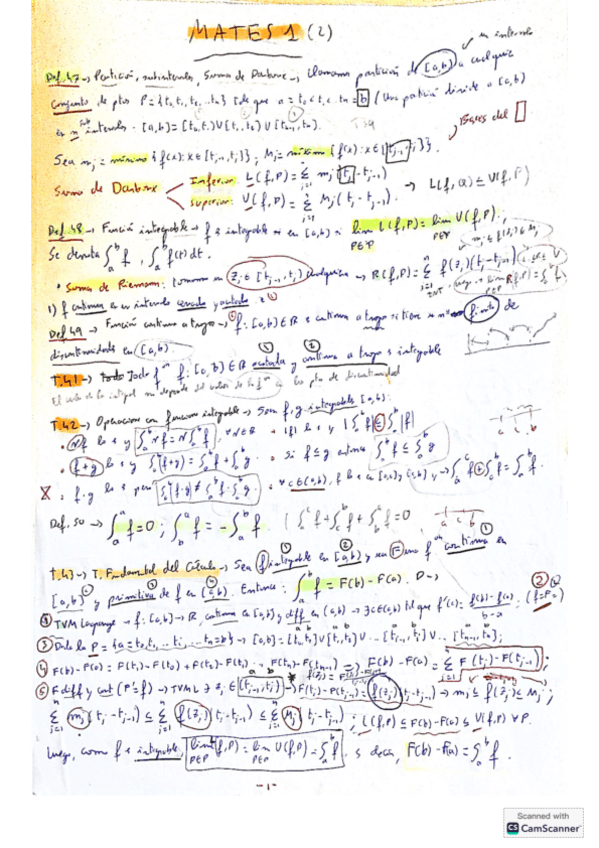 MATES 1 (2)
un intervalo
Def. 47 → Partición, subintervalo, Suma de Darboux → Llamamos partición de [a,b] a cualquier
conjunto de ptos P={t₀,t₁,t₂,...tₙ} tq que a = t₀<t₁<...tₙ=b / (Una partición divide a [a,b]
en n intervalos. [a,b]=[t₀,t₁]∪[t₁,t₂]∪[tₙ₋₁,tₙ].
Bases del
Sea mⱼ = mínimo {f(x): x∈[tⱼ₋₁,tⱼ]}; Mⱼ= máximo {f(x): x∈[tⱼ₋₁,tⱼ]}.
Suma de Darboux
Inferior: L(f,P)=Σ mⱼ(tⱼ-tⱼ₋₁)
Superior: U(f,P)=Σ Mⱼ(tⱼ-tⱼ₋₁).
→ L(f,Q) ≤ U(f,P)
Def. 48 → Función integrable → f es integrable en [a,b] si lim L(f,P) = lim U(f,P).
P∈P P∈P
Se denota ∫ₐᵇ f, ∫ₐᵇ f(t) dt.
• Suma de Riemann: tomamos un zⱼ ∈ [tⱼ₋₁,tⱼ] cualquiera → R(f,P)=Σ f(zⱼ)(tⱼ-tⱼ₋₁)
1) f continua en un intervalo cerrado y acotado
Def 49 → Función continua a trozos → f:[a,b]∈R es continua a trozos si tiene un nº finito de
discontinuidades en [a,b].
T.41 → Todo f f:[a,b]∈R acotada y continua a trozos es integrable
El valor de la integral no depende del valor de la f en los ptos de discontinuidad
T.42 → Operaciones con funciones integrables → Sean f,g integrables [a,b]:
f lo es y ∫ₐᵇ f = ∫ₐᵇ f, ∈R • |f| lo es y |∫ₐᵇ f| ≤ ∫ₐᵇ |f|
• f+g lo es y ∫ₐᵇ(f+g) = ∫ₐᵇ f + ∫ₐᵇ g • Si f ≤ g entonces ∫ₐᵇ f ≤ ∫ₐᵇ g
X • f·g lo es pero ∫ₐᵇ f·g ≠ ∫ₐᵇ f · ∫ₐᵇ g • ∀c∈(a,b), f lo es en [a,c] y [c,b] y → ∫ₐᶜ f + ∫꜀ᵇ f = ∫ₐᵇ f.
Def. 50 → ∫ₐᵃ f=0; ∫ₐᵇ f = -∫ᵦᵃ f
T.43 → T. Fundamental del Cálculo → Sea f integrable en [a,b] y sea F una f continua en
[a,b] y primitiva de f en (a,b). Entonces: ∫ₐᵇ f = F(b)-F(a). D→
② TVM Lagrange → f:[a,b]→R, continua en [a,b] y diff en (a,b) → ∃c∈(a,b) tal que f'(c)= f(b)-f(a) / b-a
③ Dada la P = {a=t₀,t₁,..tᵢ..,tₙ=b} → [a,b]=[t₀,t₁]∪[t₁,t₂]∪...[tⱼ₋₁,tⱼ]∪...[tₙ₋₁,tₙ];
④ F(b)-F(a) = F(t₁)-F(t₀)+F(t₂)-F(t₁)... F(tₙ)-F(tₙ₋₁) → F(b)-F(a) = Σ F(tⱼ)-F(tⱼ₋₁);
⑤ F diff y cont (F'=f) → TVM L ∃ zⱼ ∈ (tⱼ₋₁,tⱼ) → F(tⱼ)-F(tⱼ₋₁)= f(zⱼ)(tⱼ-tⱼ₋₁) → mⱼ ≤ f(zⱼ) ≤ Mⱼ;
Σ mⱼ(tⱼ-tⱼ₋₁) ≤ Σ f(zⱼ)(tⱼ-tⱼ₋₁) ≤ Σ Mⱼ(tⱼ-tⱼ₋₁); L(f,P) ≤ F(b)-F(a) ≤ U(f,P) ∀P.
Luego, como f es integrable, lim L(f,P) = lim U(f,P) = ∫ₐᵇ f. es decir, F(b)-F(a)=∫ₐᵇ f.
P∈P P∈P
-1-
Scanned with
CS CamScanner